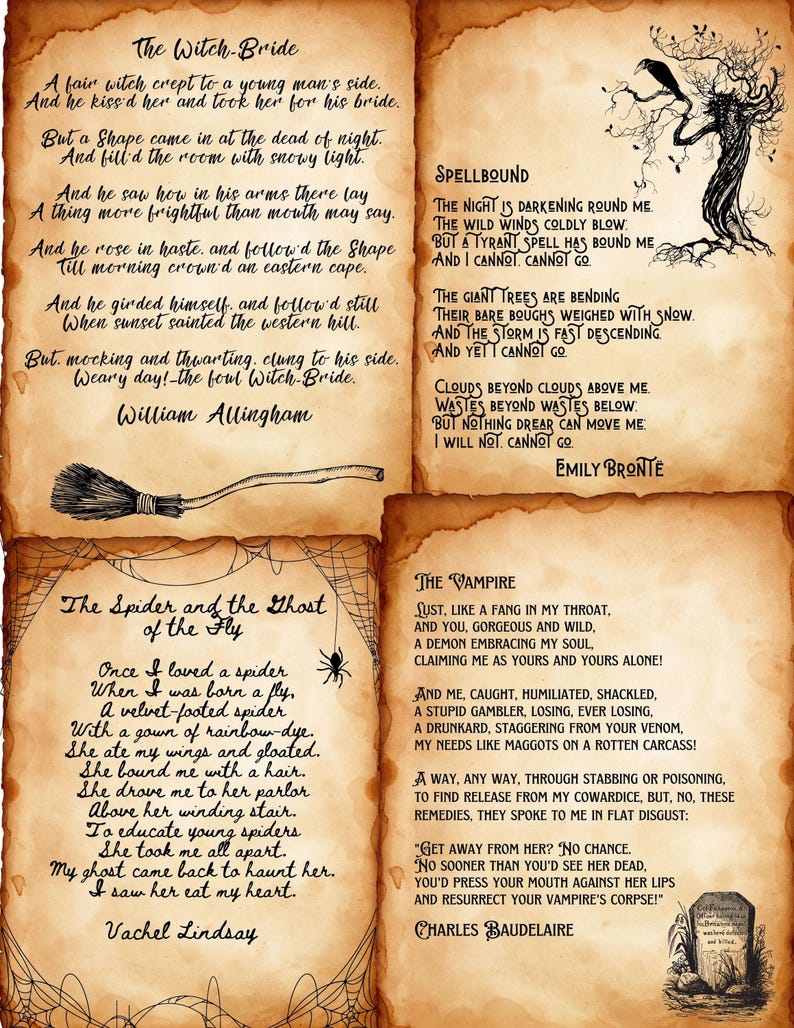 The Witch-Bride
A fair witch crept to a young man's side,
And he kiss'd her and took her for his bride.
But a Shape came in at the dead of night,
And fill'd the room with snowy light.
And he saw how in his arms there lay
A thing more frightful than mouth may say.
And he rose in haste, and follow'd the Shape
Till morning crown'd an eastern cape.
And he girded himself, and follow'd still
When sunset sainted the western hill.
But, mocking and thwarting, clung to his side,
Weary day!-the foul Witch-Bride.
William Allingham
Spellbound
The night is darkening round me,
The wild winds coldly blow;
But a tyrant spell has bound me
And I cannot, cannot go.
The giant trees are bending
Their bare boughs weighed with snow.
And the storm is fast descending,
And yet I cannot go.
Clouds beyond clouds above me,
Wastes beyond wastes below;
But nothing drear can move me;
I will not, cannot go.
Emily Brontë
The Spider and the Ghost
of the Fly
Once I loved a spider
When I was born a fly,
A velvet-footed spider
With a gown of rainbow-dye.
She ate my wings and gloated.
She bound me with a hair.
She drove me to her parlor
Above her winding stair.
To educate young spiders
She took me all apart.
My ghost came back to haunt her.
I saw her eat my heart.
Vachel Lindsay
The Vampire
Lust, like a fang in my throat,
and you, gorgeous and wild,
a demon embracing my soul,
claiming me as yours and yours alone!
And me, caught, humiliated, shackled,
a stupid gambler, losing, ever losing,
a drunkard, staggering from your venom,
my needs like maggots on a rotten carcass!
A way, any way, through stabbing or poisoning,
to find release from my cowardice, but, no, these
remedies, they spoke to me in flat disgust:
"Get away from her? No chance.
No sooner than you'd see her dead,
you'd press your mouth against her lips
and resurrect your vampire's corpse!"
Charles Baudelaire
and killed.